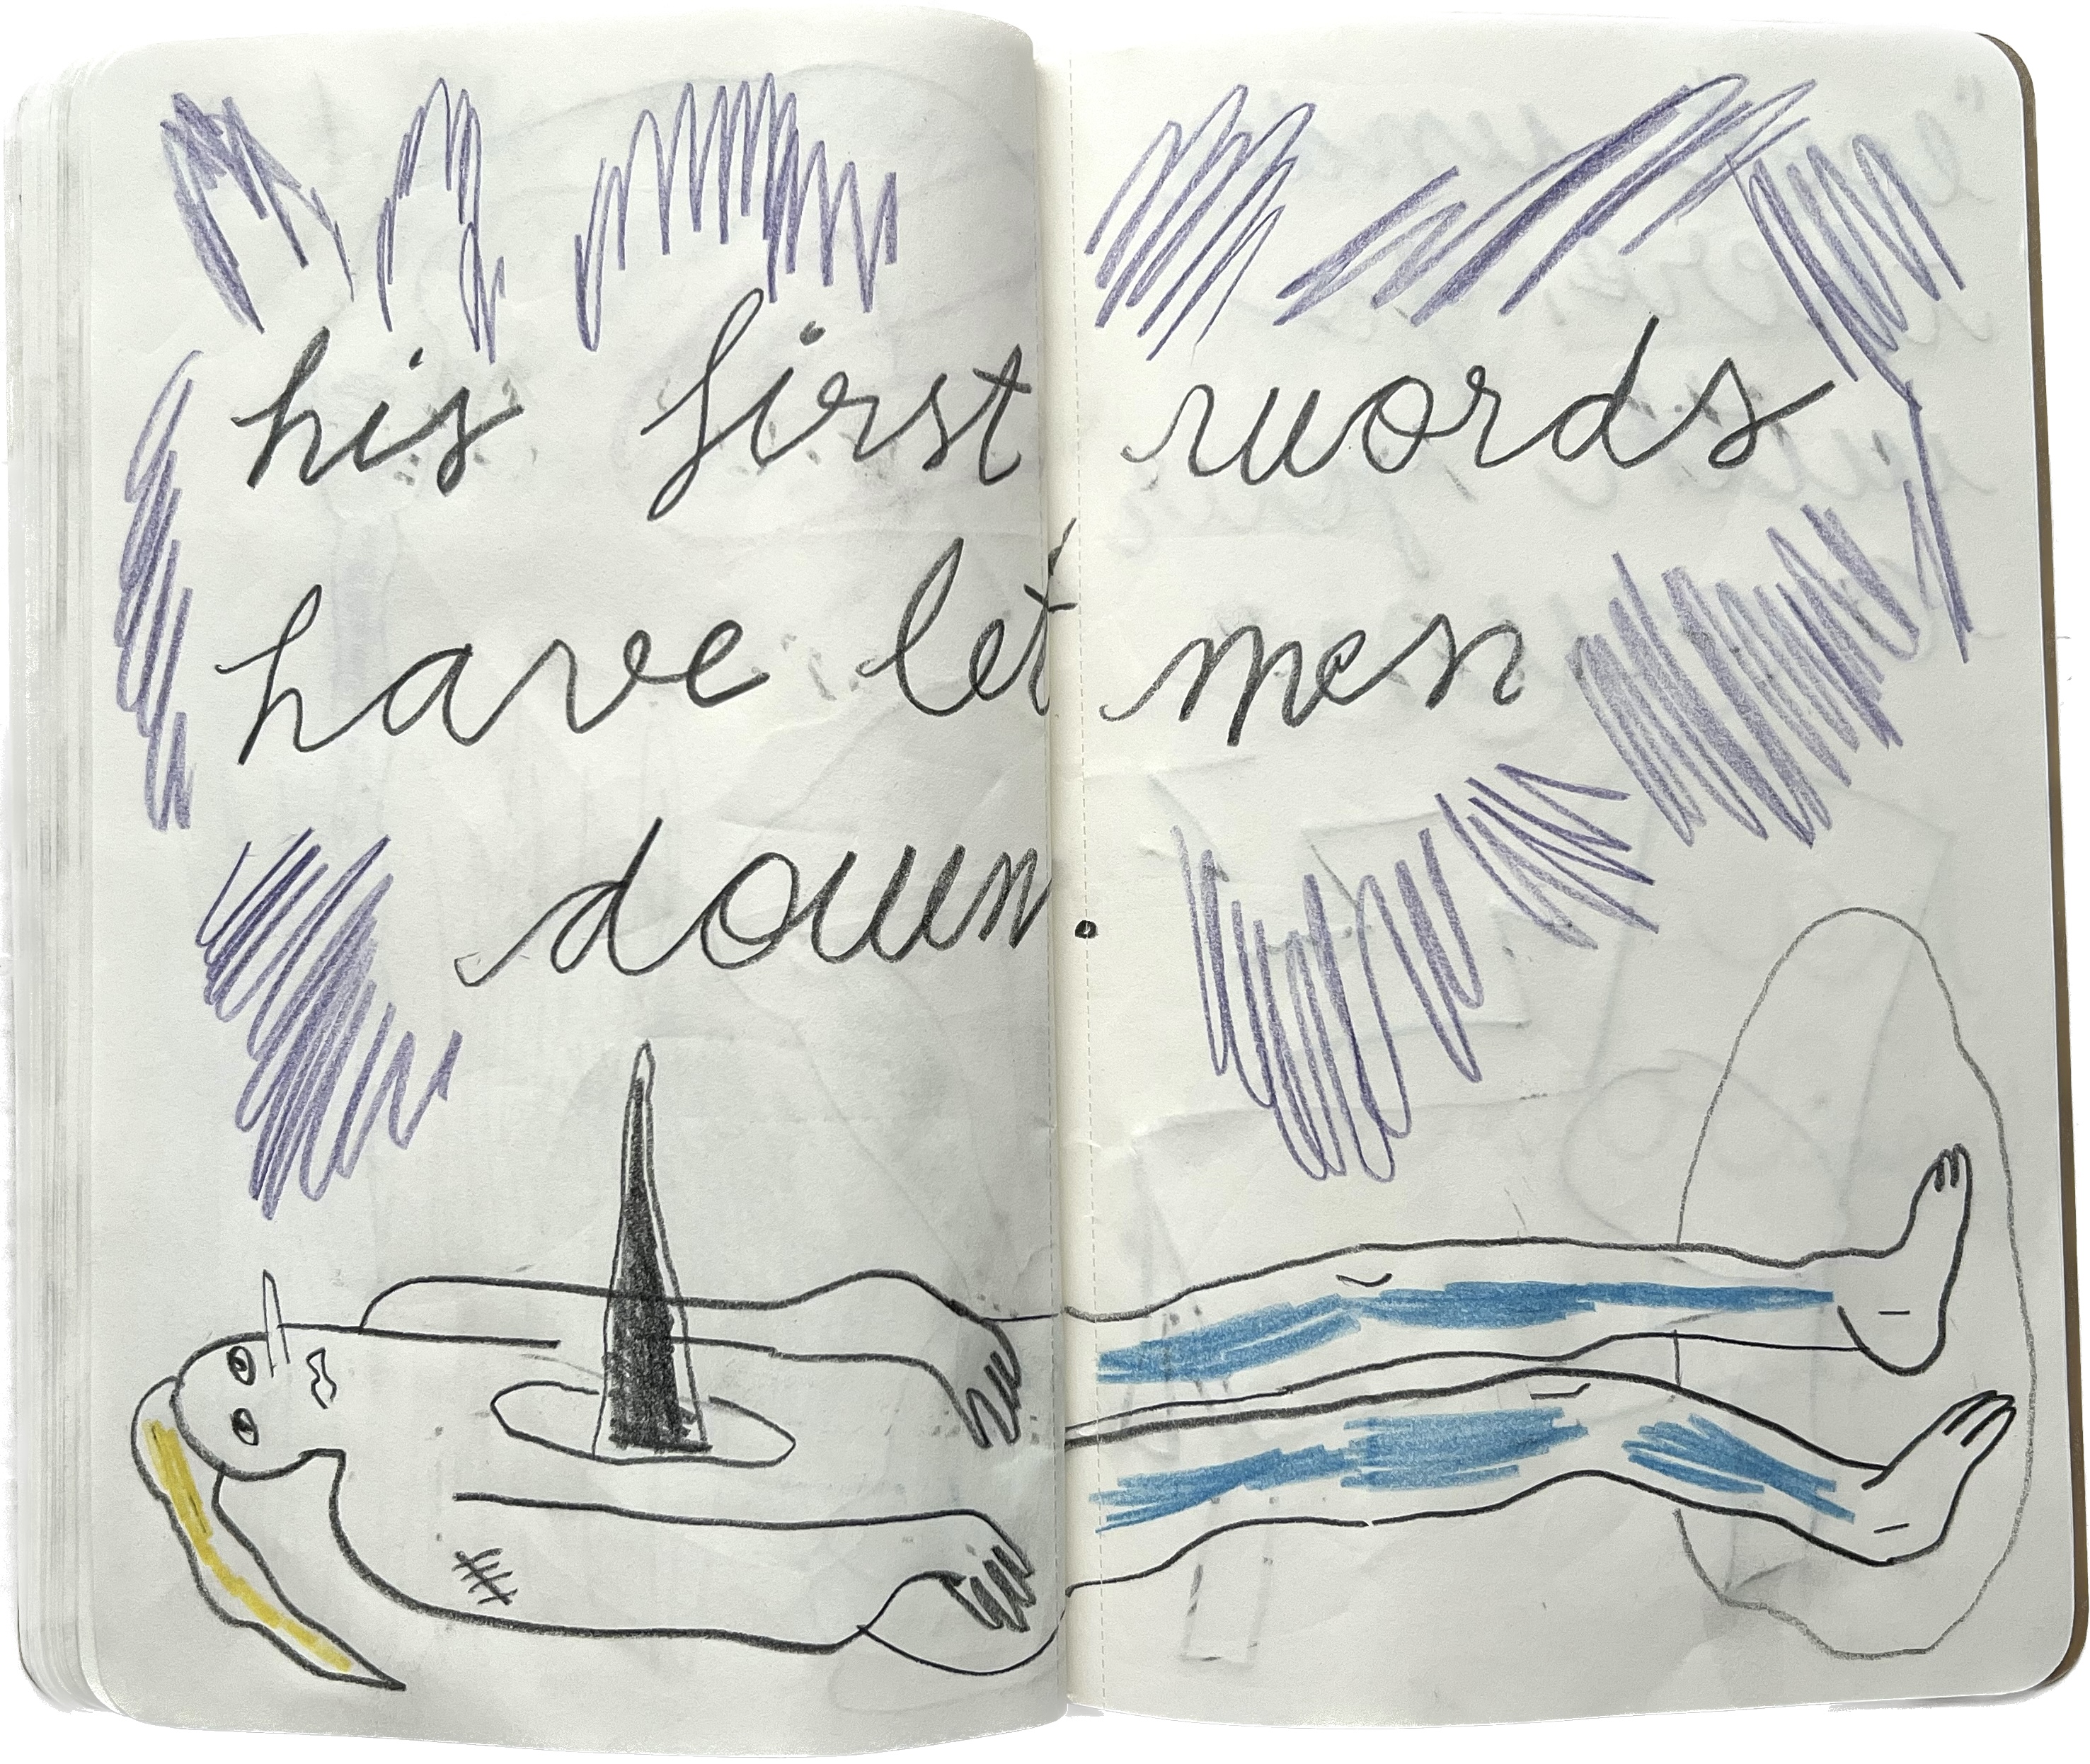 his first words
have let men
down.